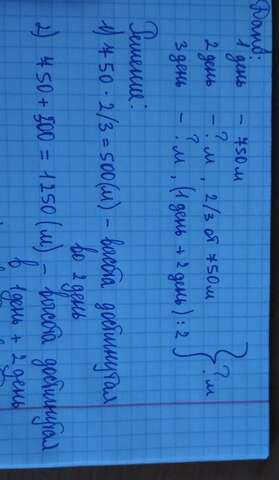 Дано:
1 день – 750 м
2 день – ? м, 2/3 от 750 м
3 день – ? м, (1 день + 2 день) : 2 } ? м
Решение:
1) 750 · 2/3 = 500 (м) – высота достигнутая
во 2 день
2) 750 + 500 = 1250 (м) – высота достигнутая
в 1 день + 2 день